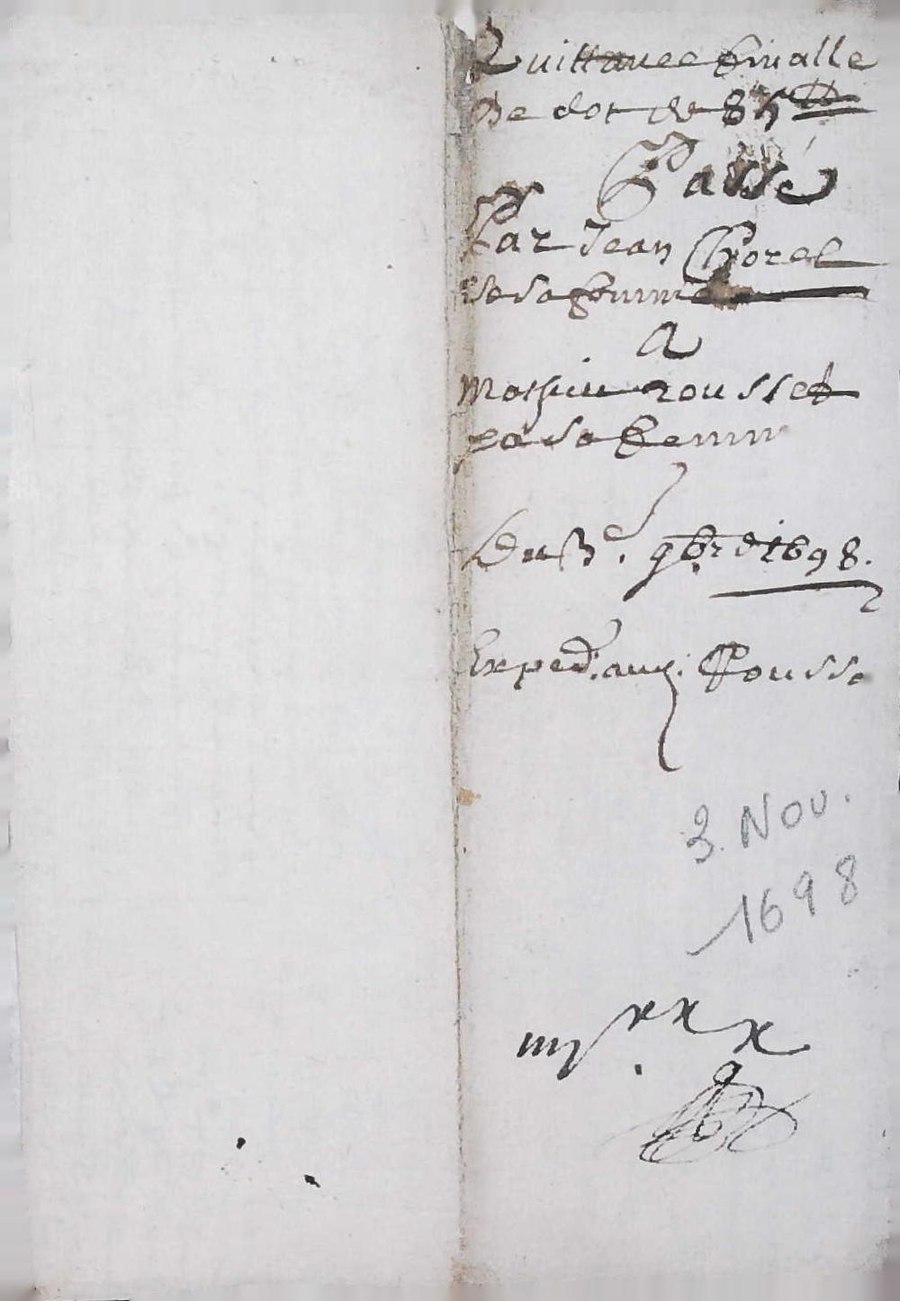 Quittance finalle
De dot de 85 ₶
Passé
Par Jean Chorel
et sa femme
A
Mathieu rousset
et a sa femme
Du 3e. 9bre 1698.
Exped. aux. Rousse
3. Nov.
1698